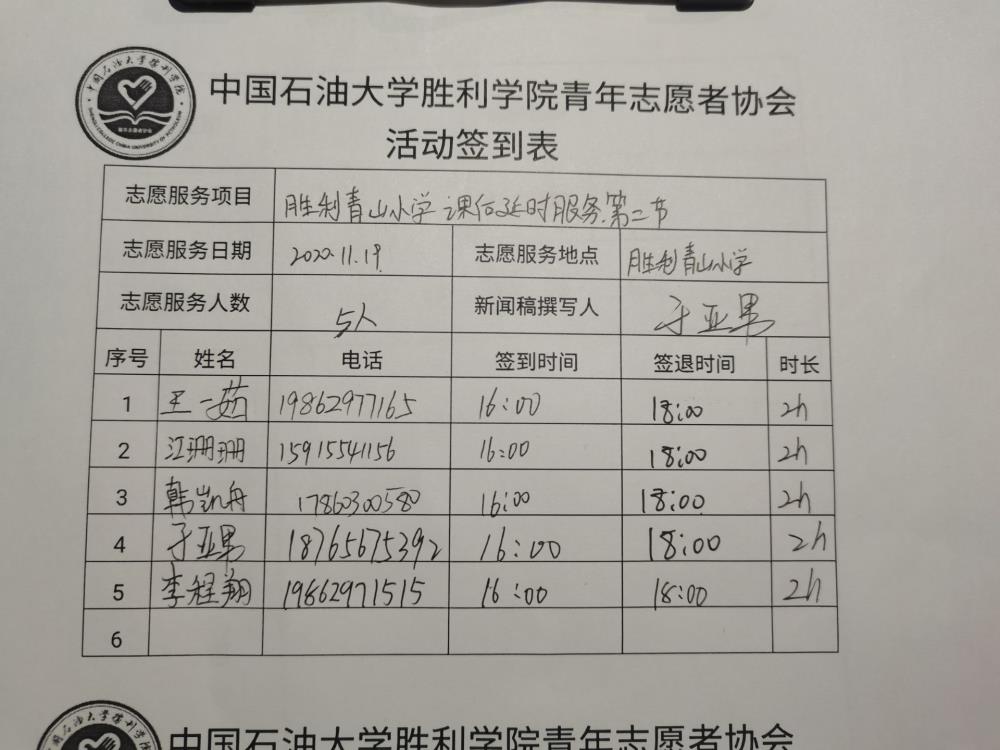 中国石油大学胜利学院青年志愿者协会
活动签到表
志愿服务项目 胜利青山小学课后延时服务第二节
志愿服务日期 2020.11.19 志愿服务地点 胜利青山小学
志愿服务人数 5人 新闻稿撰写人 于亚男
序号 姓名 电话 签到时间 签退时间 时长
1 王一茹 19862977165 16:00 18:00 2h
2 江珊珊 15915541156 16:00 18:00 2h
3 韩凯舟 17860300580 16:00 18:00 2h
4 于亚男 18765675392 16:00 18:00 2h
5 李程翔 19862971515 16:00 18:00 2h
6
中国石油大学胜利学院青年志愿者协会